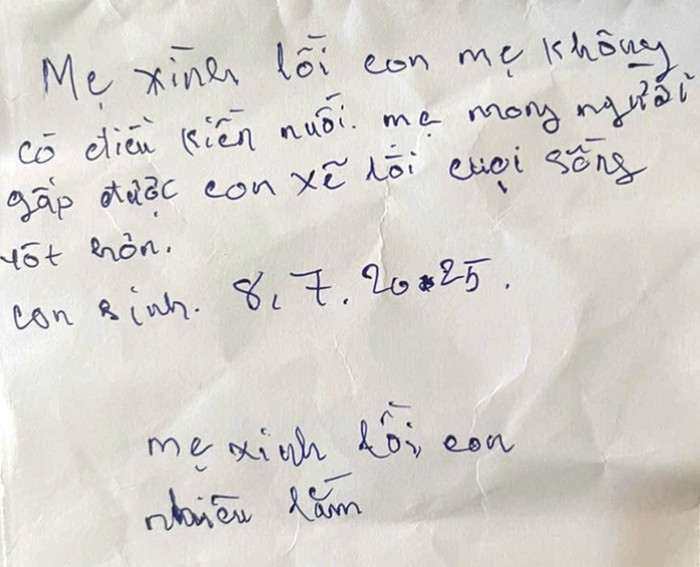 Mẹ xình lỗi con mẹ không
có điều kiến nuối. mẹ mong người
gấp được con xẽ lỗi cuọi sống
tốt hơn.
con sinh. 8, 7. 2025.
mẹ xinh lỗi con
nhiều lắm